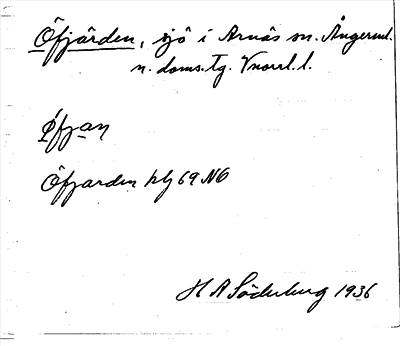 Öfjärden, sjö i Arnäs sn. Ångerml.
n. doms. tg. Vnorrl. l.
Öfjan
Öfjarden kbl 69 NO
H A Söderberg 1936